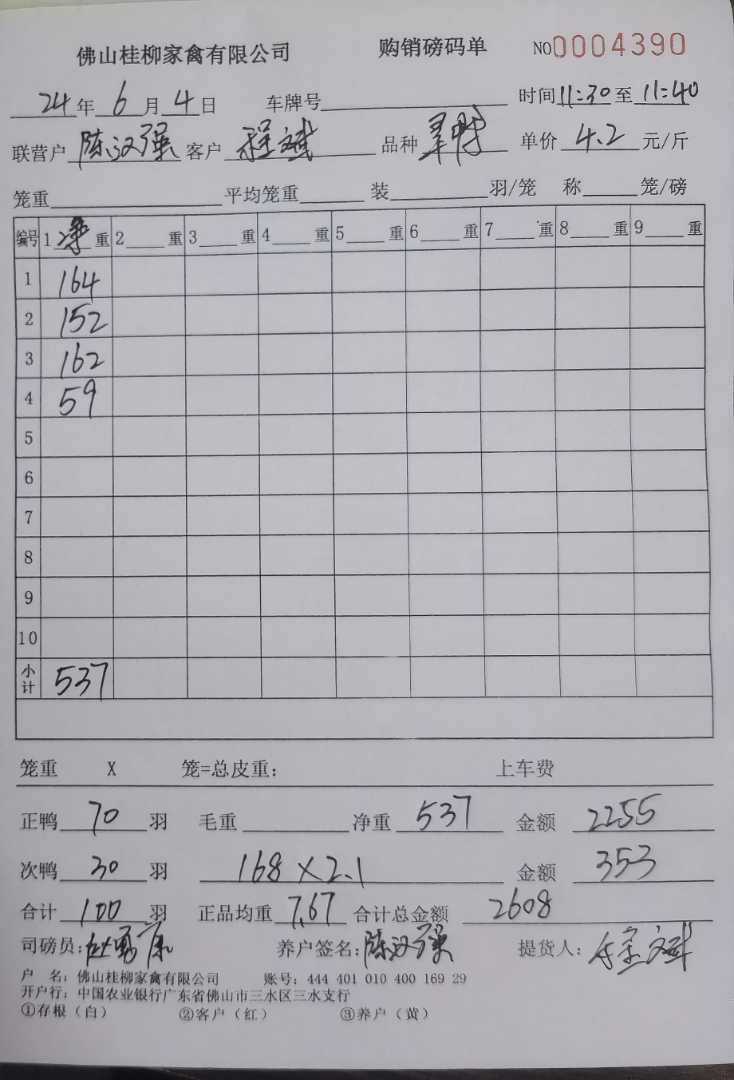 佛山桂柳家禽有限公司 购销磅码单 NO0004390
24年6月4日 车牌号 时间11:30至11:40
联营户 陈汉强 客户 程斌 品种 单价 4.2 元/斤
笼重 平均笼重 装 羽/笼 称 笼/磅
编号 1 净 重 2 重 3 重 4 重 5 重 6 重 7 重 8 重 9 重
1 164
2 152
3 162
4 59
5
6
7
8
9
10
小计 537
笼重 X 笼=总皮重: 上车费
正鸭 70 羽 毛重 净重 537 金额 2255
次鸭 30 羽 168×2.1 金额 353
合计 100 羽 正品均重 7.67 合计总金额 2608
司磅员: 养户签名: 陈汉强 提货人:
户 名: 佛山桂柳家禽有限公司 账号: 444 401 010 400 169 29
开户行: 中国农业银行广东省佛山市三水区三水支行
①存根（白） ②客户（红） ③养户（黄）